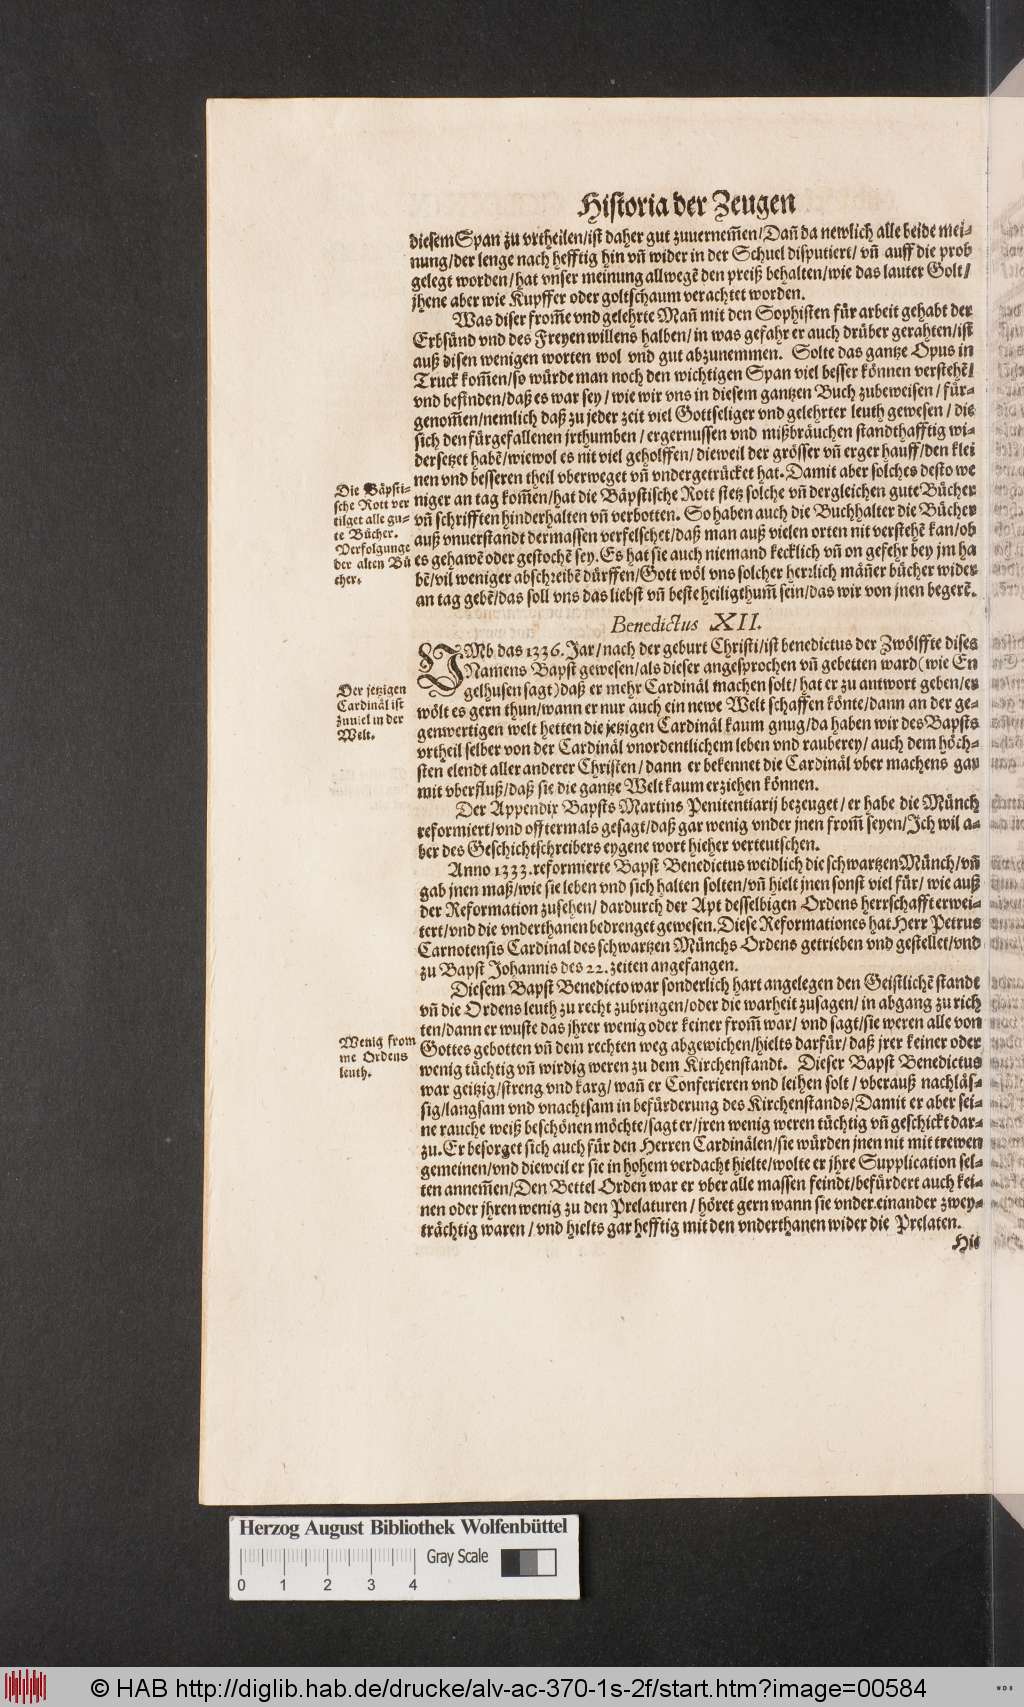 Historia der Zeugen
diesem Span zu vrtheilen/ist daher gut zuuernem̃en/Dañ da newlich alle beide mei-
nung/der lenge nach hefftig hin vñ wider in der Schuel disputiert/ vñ auff die prob
gelegt worden/hat vnser meinung allwegẽ den preiß behalten/wie das lauter Golt/
jhene aber wie Kupffer oder goltschaum verachtet worden.
Was diser from̃e vnd gelehrte Mañ mit den Sophisten für arbeit gehabt der
Erbsünd vnd des Freyen willens halben/ in was gefahr er auch drüber gerahten/ist
auß disen wenigen worten wol vnd gut abzunemmen. Solte das gantze Opus in
Truck kom̃en/so würde man noch den wichtigen Span viel besser können verstehẽ/
vnd befinden/daß es war sey/ wie wir vns in diesem gantzen Buch zubeweisen/ für-
genom̃en/nemlich daß zu jeder zeit viel Gottseliger vnd gelehrter leuth gewesen/ die
sich den fürgefallenen jrthumben/ ergernussen vnd mißbräuchen standthafftig wi-
dersetzet habẽ/wiewol es nit viel geholffen/ dieweil der grösser vñ erger hauff/den klei
nen vnd besseren theil vberweget vñ vndergetrücket hat. Damit aber solches desto we
niger an tag kom̃en/hat die Bäpstische Rott stetz solche vñ dergleichen gute Bücher
vñ schrifften hinderhalten vñ verbotten. So haben auch die Buchhalter die Bücher
auß vnuerstandt dermassen verfelschet/daß man auß vielen orten nit verstehẽ kan/ob
es gehawẽ oder gestochẽ sey. Es hat sie auch niemand kecklich vñ on gefehr bey jm ha
bẽ/vil weniger abschreibẽ dürffen/Gott wöl vns solcher herrlich mäñer bücher wider
an tag gebẽ/das soll vns das liebst vñ beste heiligthum̃ sein/das wir von jnen begerẽ.
Die Bäpsti-
sche Rott ver
tilget alle gu-
te Bücher.
Verfolgunge
der alten Bü
cher.
Benedictus XII.
VMb das 1336. Jar/nach der geburt Christi/ist benedictus der Zwölffte dises
Namens Bapst gewesen/als dieser angesprochen vñ gebetten ward (wie En
gelhusen sagt) daß er mehr Cardinäl machen solt/ hat er zu antwort geben/er
wölt es gern thun/wann er nur auch ein newe Welt schaffen könte/dann an der ge-
genwertigen welt hetten die jetzigen Cardinäl kaum gnug/da haben wir des Bapsts
vrtheil selber von der Cardinäl vnordentlichem leben vnd rauberey/ auch dem höch-
sten elendt aller anderer Christen/ dann er bekennet die Cardinäl vber machens gar
mit vberfluß/daß sie die gantze Welt kaum erziehen können.
Der jetzigen
Cardinäl ist
zuuiel in der
Welt.
Der Appendix Bapsts Martins Penitentiarij bezeuget/ er habe die Münch
reformiert/vnd offtermals gesagt/daß gar wenig vnder jnen from̃ seyen/Jch wil a-
ber des Geschichtschreibers eygene wort hieher verteutschen.
Anno 1333. reformierte Bapst Benedictus weidlich die schwartzen Münch/vñ
gab jnen maß/wie sie leben vnd sich halten solten/vñ hielt jnen sonst viel für/ wie auß
der Reformation zusehen/ dardurch der Apt desselbigen Ordens herrschafft erwei-
tert/vnd die vnderthanen bedrenget gewesen. Diese Reformationes hat Herr Petrus
Carnotensis Cardinal des schwartzen Münchs Ordens getrieben vnd gestellet/vnd
zu Bapst Johannis des 22. zeiten angefangen.
Diesem Bapst Benedicto war sonderlich hart angelegen den Geistlichẽ stande
vñ die Ordens leuth zu recht zubringen/oder die warheit zusagen/ in abgang zu rich
ten/dann er wuste das jhrer wenig oder keiner from̃ war/ vnd sagt/sie weren alle von
Gottes gebotten vñ dem rechten weg abgewichen/hielts darfür/ daß jrer keiner oder
wenig tüchtig vñ wirdig weren zu dem Kirchenstandt. Dieser Bapst Benedictus
war geitzig/streng vnd karg/ wañ er Conferieren vnd leihen solt/ vberauß nachläs-
sig/langsam vnd vnachtsam in befürderung des Kirchenstands/Damit er aber sei-
ne rauche weiß beschönen möchte/sagt er/jren wenig weren tüchtig vñ geschickt dar-
zu. Er besorget sich auch für den Herren Cardinälen/sie würden jnen nit mit trewen
gemeinen/vnd dieweil er sie in hohem verdacht hielte/wolte er jhre Supplication sel-
ten annem̃en/Den Bettel Orden war er vber alle massen feindt/befürdert auch kei-
nen oder jhren wenig zu den Prelaturen/ höret gern wann sie vnder einander zwey-
trächtig waren/ vnd hielts gar hefftig mit den vnderthanen wider die Prelaten.
Wenig from
me Ordens
leuth.
Hie
Herzog August Bibliothek Wolfenbüttel
Gray Scale
0 1 2 3 4
© HAB http://diglib.hab.de/drucke/alv-ac-370-1s-2f/start.htm?image=00584